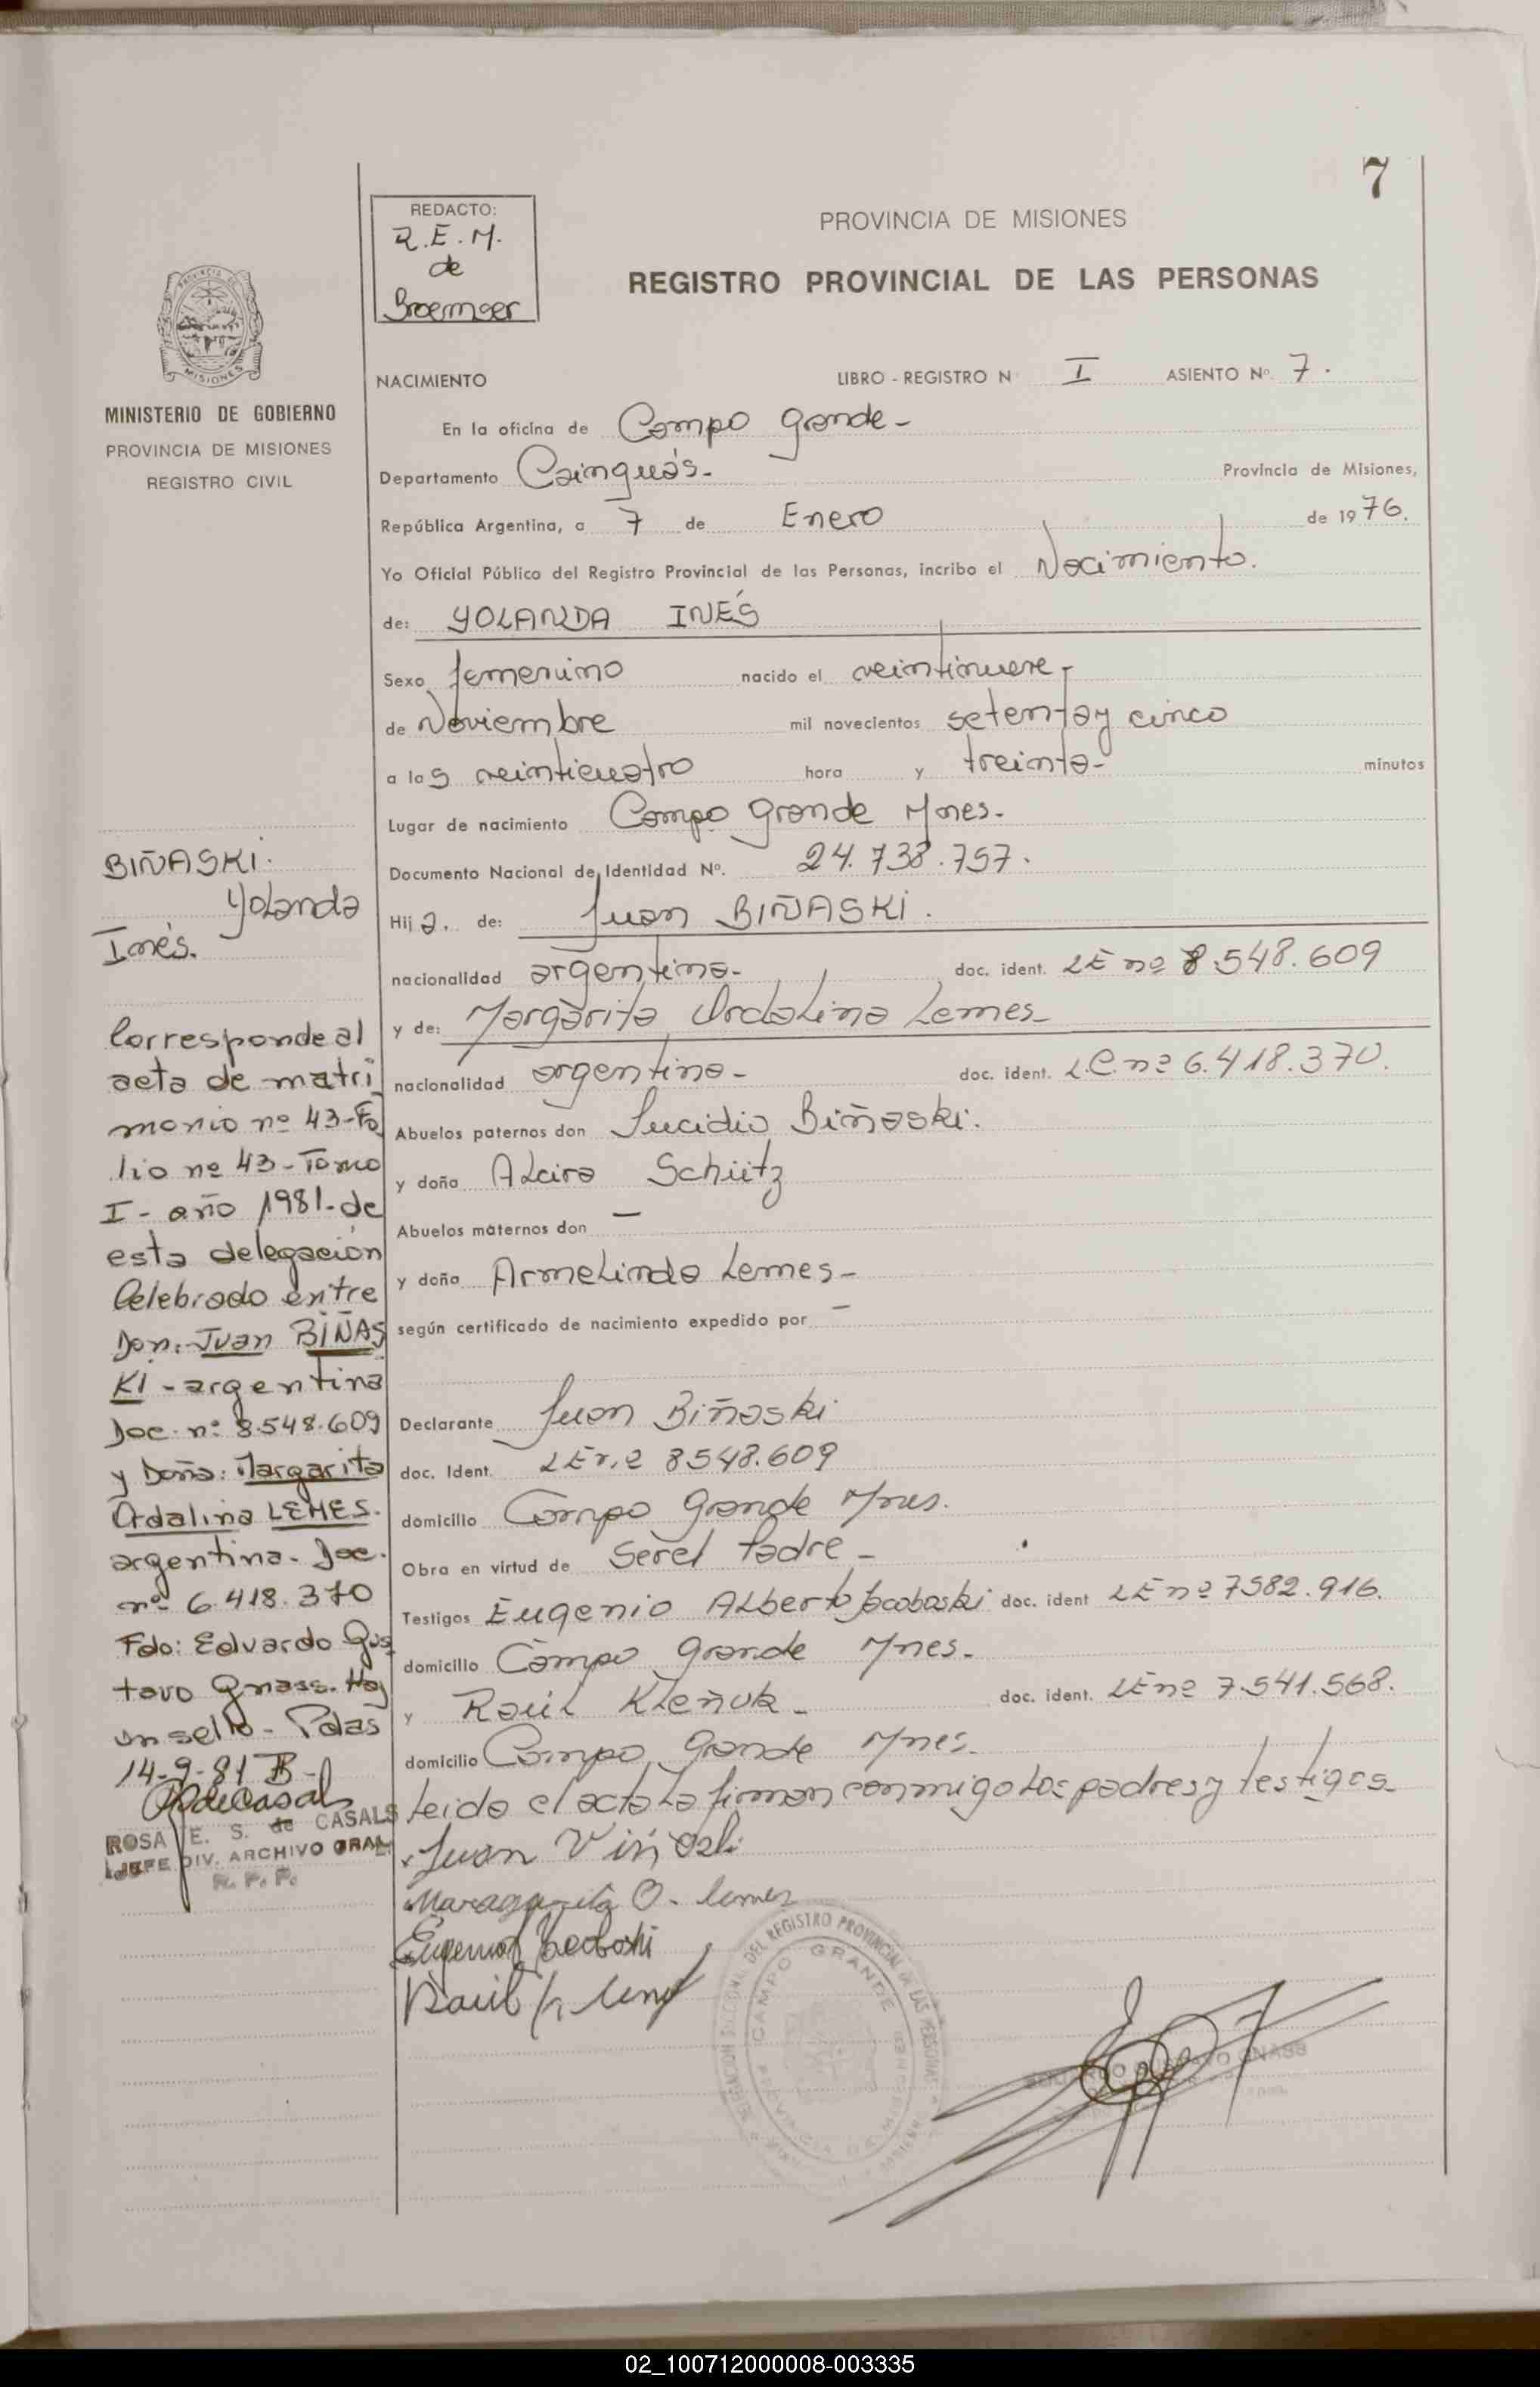 7
REDACTO:
R.E.M.
de
Broemser
PROVINCIA DE MISIONES
REGISTRO PROVINCIAL DE LAS PERSONAS
MISIONES
MINISTERIO DE GOBIERNO
PROVINCIA DE MISIONES
REGISTRO CIVIL
NACIMIENTO LIBRO - REGISTRO N I ASIENTO Nº 7.
En la oficina de Campo Grande-
Departamento Cainguás- Provincia de Misiones,
República Argentina, a 7 de Enero de 1976.
Yo Oficial Público del Registro Provincial de las Personas, incribo el Nacimiento.
de: YOLANDA INÉS
Sexo femenino nacido el veintinueve-
de Noviembre mil novecientos setentay cinco
a las veinticuatro hora y treinta- minutos
Lugar de nacimiento Campo Grande Mnes-
Documento Nacional de Identidad Nº. 24.738.757.
Hija. de: Juan BIÑASKI.
nacionalidad argentina- doc. ident. LE nº 8.548.609
y de: Margarita Ordalina Lemes-
nacionalidad argentina- doc. ident. L.C. nº 6.418.370.
Abuelos paternos don Lucidio Biñaski.
y doña Alcira Schütz
Abuelos maternos don —
y doña Armelinda Lemes-
según certificado de nacimiento expedido por —
Declarante Juan Biñaski
doc. Ident. LE nº 8548.609
domicilio Campo Grande Mnes.
Obra en virtud de Serel Padre-
Testigos Eugenio Alberto Jacoboski doc. ident LE nº 7582.916.
domicilio Campo Grande Mnes-
y Raúl Kleñuk- doc. ident. LE nº 7.541.568.
domicilio Campo Grande Mnes-
Leida el acta la firman conmigo los padres y testigos-
Juan
Maragarita O. lemes
Eugenio Jacoboski
Raúl
BIÑASKI.
Yolanda
Inés.
Corresponde al
acta de matri
monio nº 43-Fo
lio nº 43-Tomo
I- año 1981-de
esta delegación
Celebrado entre
Don:-Juan BIÑAS
KI-argentina
Doc. nº: 8.548.609
y Doña: Margarita
Ordalina LEMES.
argentina. Doc.
nº 6.418.370
Fdo: Eduardo Gus
tavo Gnass. Hay
un sello- Pdas
14-9-81
ROSA E. S. de CASALS
JEFE DIV. ARCHIVO GRAL.
R. P. P.
DELEGACION SECCIONAL DEL REGISTRO PROVINCIAL DE LAS PERSONAS
CAMPO GRANDE
PROVINCIA DE MISIONES
EDUARDO GUSTAVO GNASS
02_100712000008-003335